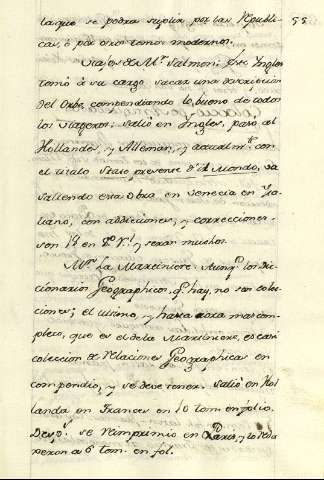 la que se podra suplir por las Republi- 55
cas, ò por otros tomos modernos.
Viajes de Mr. Salmon: Este Ingles
tomó à su cargo sacar una descripcion
del Orbe, compendiando lo bueno de todos
los Viageros: saliò en Ingles, pasò al
Hollandes, y Alleman, y actualmte. con
el titulo Stato presente d'il Mondo, va
saliendo esta Obra en Venecia en Ita-
liano, con addiciones, y correcciones.
son 18 en 8º. y seran muchos.
Mr. La Martiniere. Aunqe. los Dic-
cionarios Geographicos, qe. hay, no son colec-
ciones; el ultimo, y hasta aora mas com-
pleto, que es el de la Martiniere, es casi
coleccion de Relaciones Geographicas en
compendio, y se deve tener. Saliò en Hol-
landa en Frances en 10 tom. en folio.
Desps. se reimprimio en Paris, y lo redu
xeron a 6 tom. en fol.